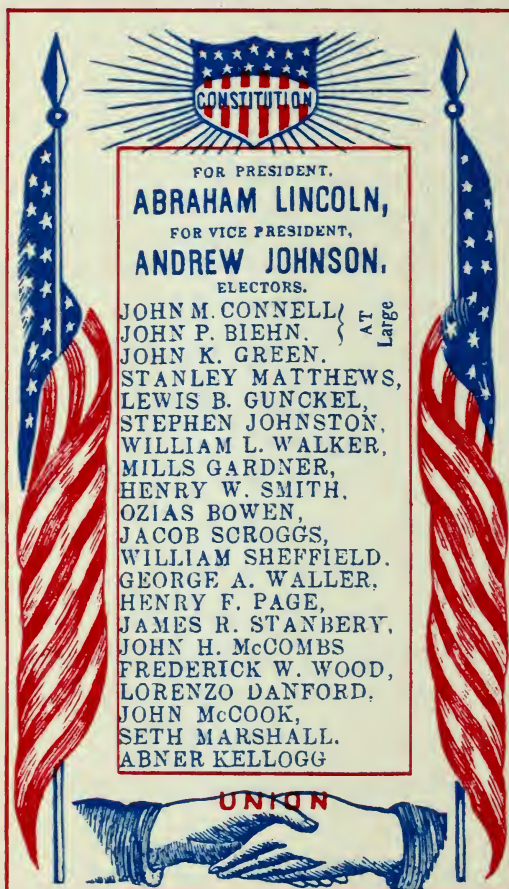 CONSTITUTION
FOR PRESIDENT,
ABRAHAM LINCOLN,
FOR VICE PRESIDENT,
ANDREW JOHNSON.
ELECTORS.
JOHN M. CONNELL
JOHN P. BIEHN.
AT Large
JOHN K. GREEN.
STANLEY MATTHEWS,
LEWIS B. GUNCKEL,
STEPHEN JOHNSTON,
WILLIAM L. WALKER,
MILLS GARDNER,
HENRY W. SMITH,
OZIAS BOWEN,
JACOB SCROGGS,
WILLIAM SHEFFIELD.
GEORGE A. WALLER,
HENRY F. PAGE,
JAMES R. STANBERY,
JOHN H. McCOMBS
FREDERICK W. WOOD,
LORENZO DANFORD,
JOHN McCOOK,
SETH MARSHALL.
ABNER KELLOGG
UNION